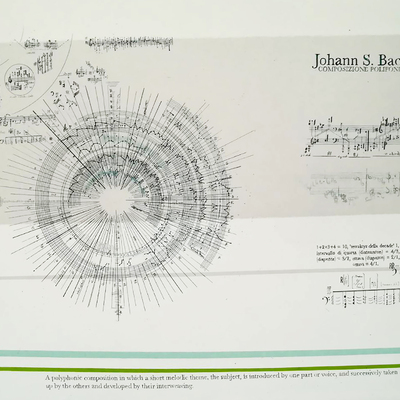 Johann S. Bac
COMPOSIZIONE POLIFON
1+2+3+4 = 10,
intervallo di quarta (diatessaron) = 4/3,
(diapente) = 3/2, ottava (diapason) = 2/1,
A polyphonic composition in which a short melodic theme, the subject, is introduced by one part or voice, and successively taken
up by the others and developed by their interweaving